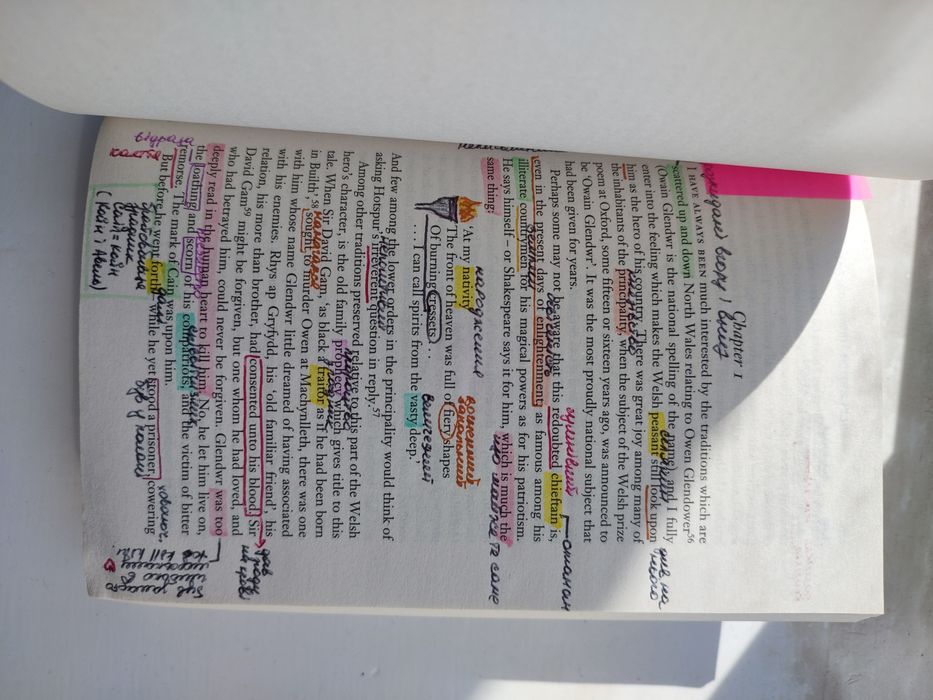 розкидані вгору і вниз
Chapter 1
I HAVE ALWAYS BEEN much interested by the traditions which are
scattered up and down North Wales relating to Owen Glendower⁵⁶
(Owain Glendwr is the national spelling of the name) and I fully
enter into the feeling which makes the Welsh peasant still look upon
him as the hero of his country. There was great joy among many of
the inhabitants of the principality, when the subject of the Welsh prize
poem at Oxford, some fifteen or sixteen years ago, was announced to
be 'Owain Glendwr'. It was the most proudly national subject that
had been given for years.
Perhaps some may not be aware that this redoubted chieftain is,
even in the present days of enlightenment, as famous among his
illiterate countrymen for his magical powers as for his patriotism.
He says himself – or Shakespeare says it for him, which is much the
same thing:
отаман
що майже те саме
народження
'At my nativity
The front of heaven was full of fiery shapes
Of burning cressets . . .
. . . I can call spirits from the vasty deep.'
And few among the lower orders in the principality would think of
asking Hotspur's irreverent question in reply.⁵⁷
Among other traditions preserved relative to this part of the Welsh
hero's character, is the old family prophecy which gives title to this
tale. When Sir David Gam, 'as black a traitor as if he had been born
in Builth',⁵⁸ sought to murder Owen at Machynlleth, there was one
with him whose name Glendwr little dreamed of having associated
with his enemies. Rhys ap Gryfydd, his 'old familiar friend', his
relation, his more than brother, had consented unto his blood. Sir
David Gam⁵⁹ might be forgiven, but one whom he had loved, and
who had betrayed him, could never be forgiven. Glendwr was too
deeply read in the human heart to kill him. No, he let him live on,
the loathing and scorn of his compatriots, and the victim of bitter
remorse. The mark of Cain was upon him.
But before he went forth – while he yet stood prisoner, cowering
(Каїн і Авель)